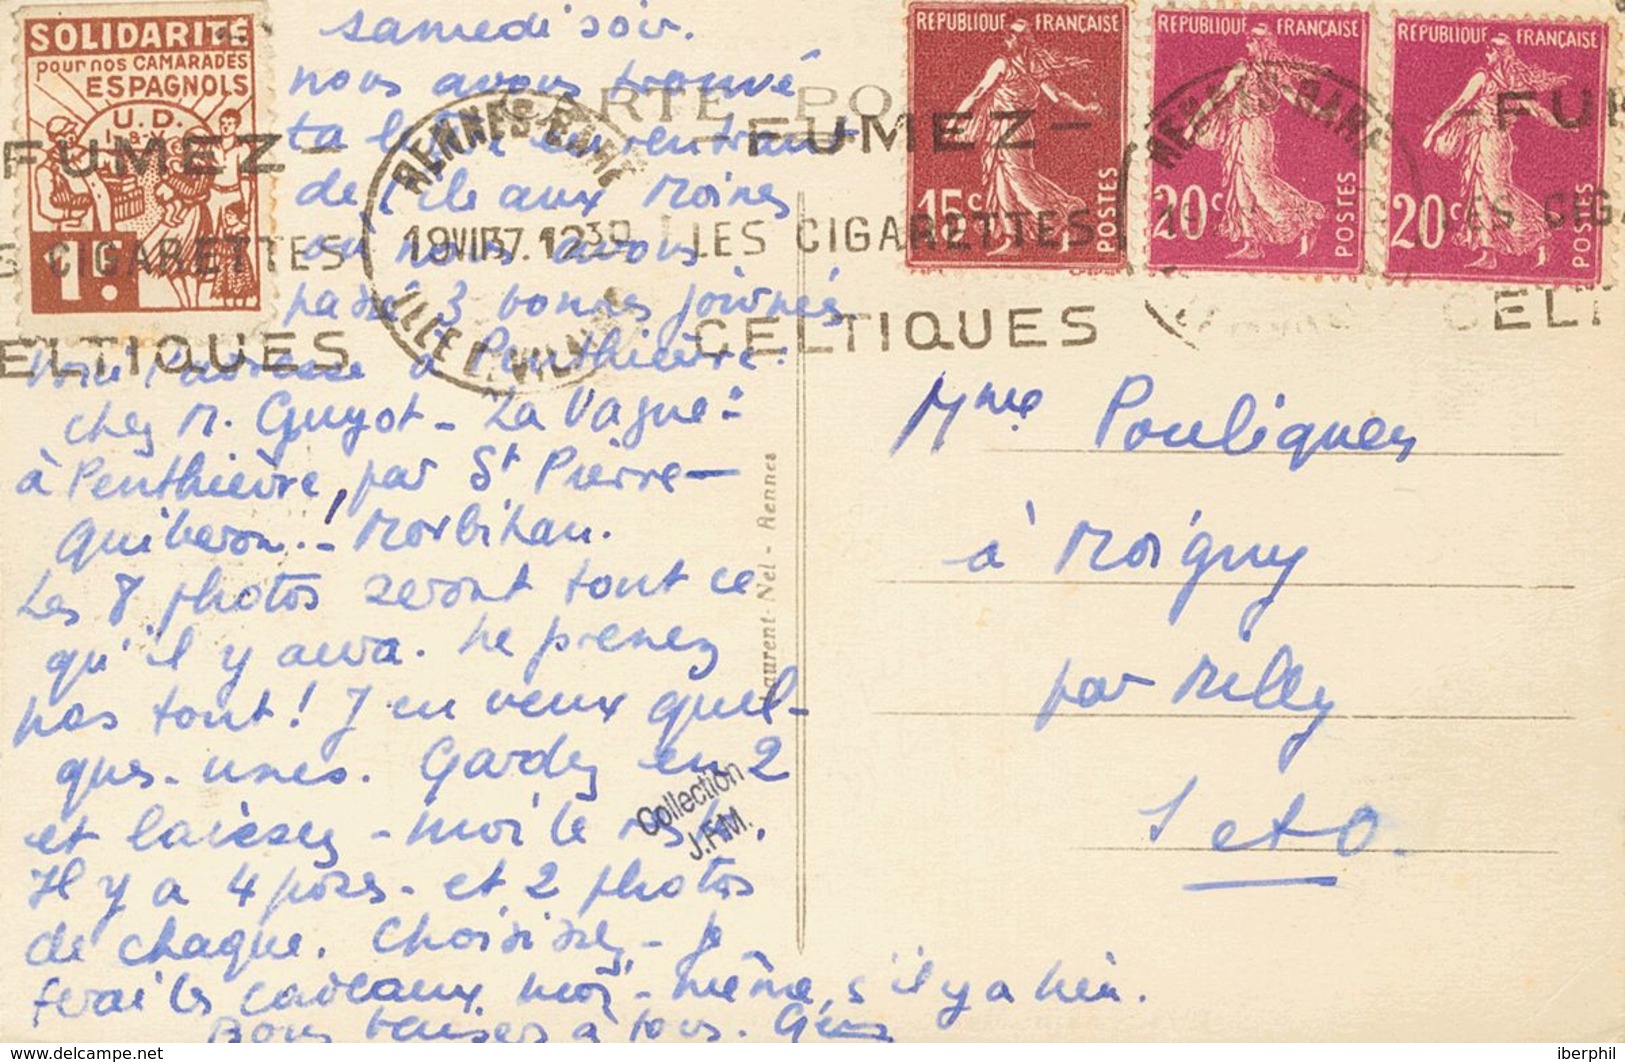 SOLIDARITÉ
pour nos CAMARADES
ESPAGNOLS
U.D.
1F.
samedi soir.
nous avons trouvé
ta lettre en rentrant
de l'île aux Moines
où nous avons
passé 3 bonnes journées
l'adresse à Penthièvre.
chez M. Guyot - La Vague -
à Penthièvre, par St Pierre -
Quiberon. - Morbihan.
Les 8 photos seront tout ce
qu'il y aura. Ne prenez
pas tout! J'en veux quel-
ques-unes. Gardez en 2
et laissez-moi le reste.
Il y a 4 poses - et 2 photos
de chaque. Choisissez - je
ferai les cadeaux moi-même, s'il y a lieu.
Bons baisers à tous.
CARTE PO
RENNES-GARE
19 VII 37. 12 30
ILLE ET VILAINE
FUMEZ -
G CIGARETTES
ELTIQUES
- FUMEZ -
LES CIGARETTES
CELTIQUES
RÉPUBLIQUE FRANÇAISE
15c
POSTES
RÉPUBLIQUE FRANÇAISE
20c
POSTES
RÉPUBLIQUE FRANÇAISE
20c
POSTES
RENNES-GARE
- FUM
LES CIGA
CELT
Laurent-Nel - Rennes
Mme Pouliquen
à Moigny
par Milly
S et O.
Collection
J.F.M.
iberphil